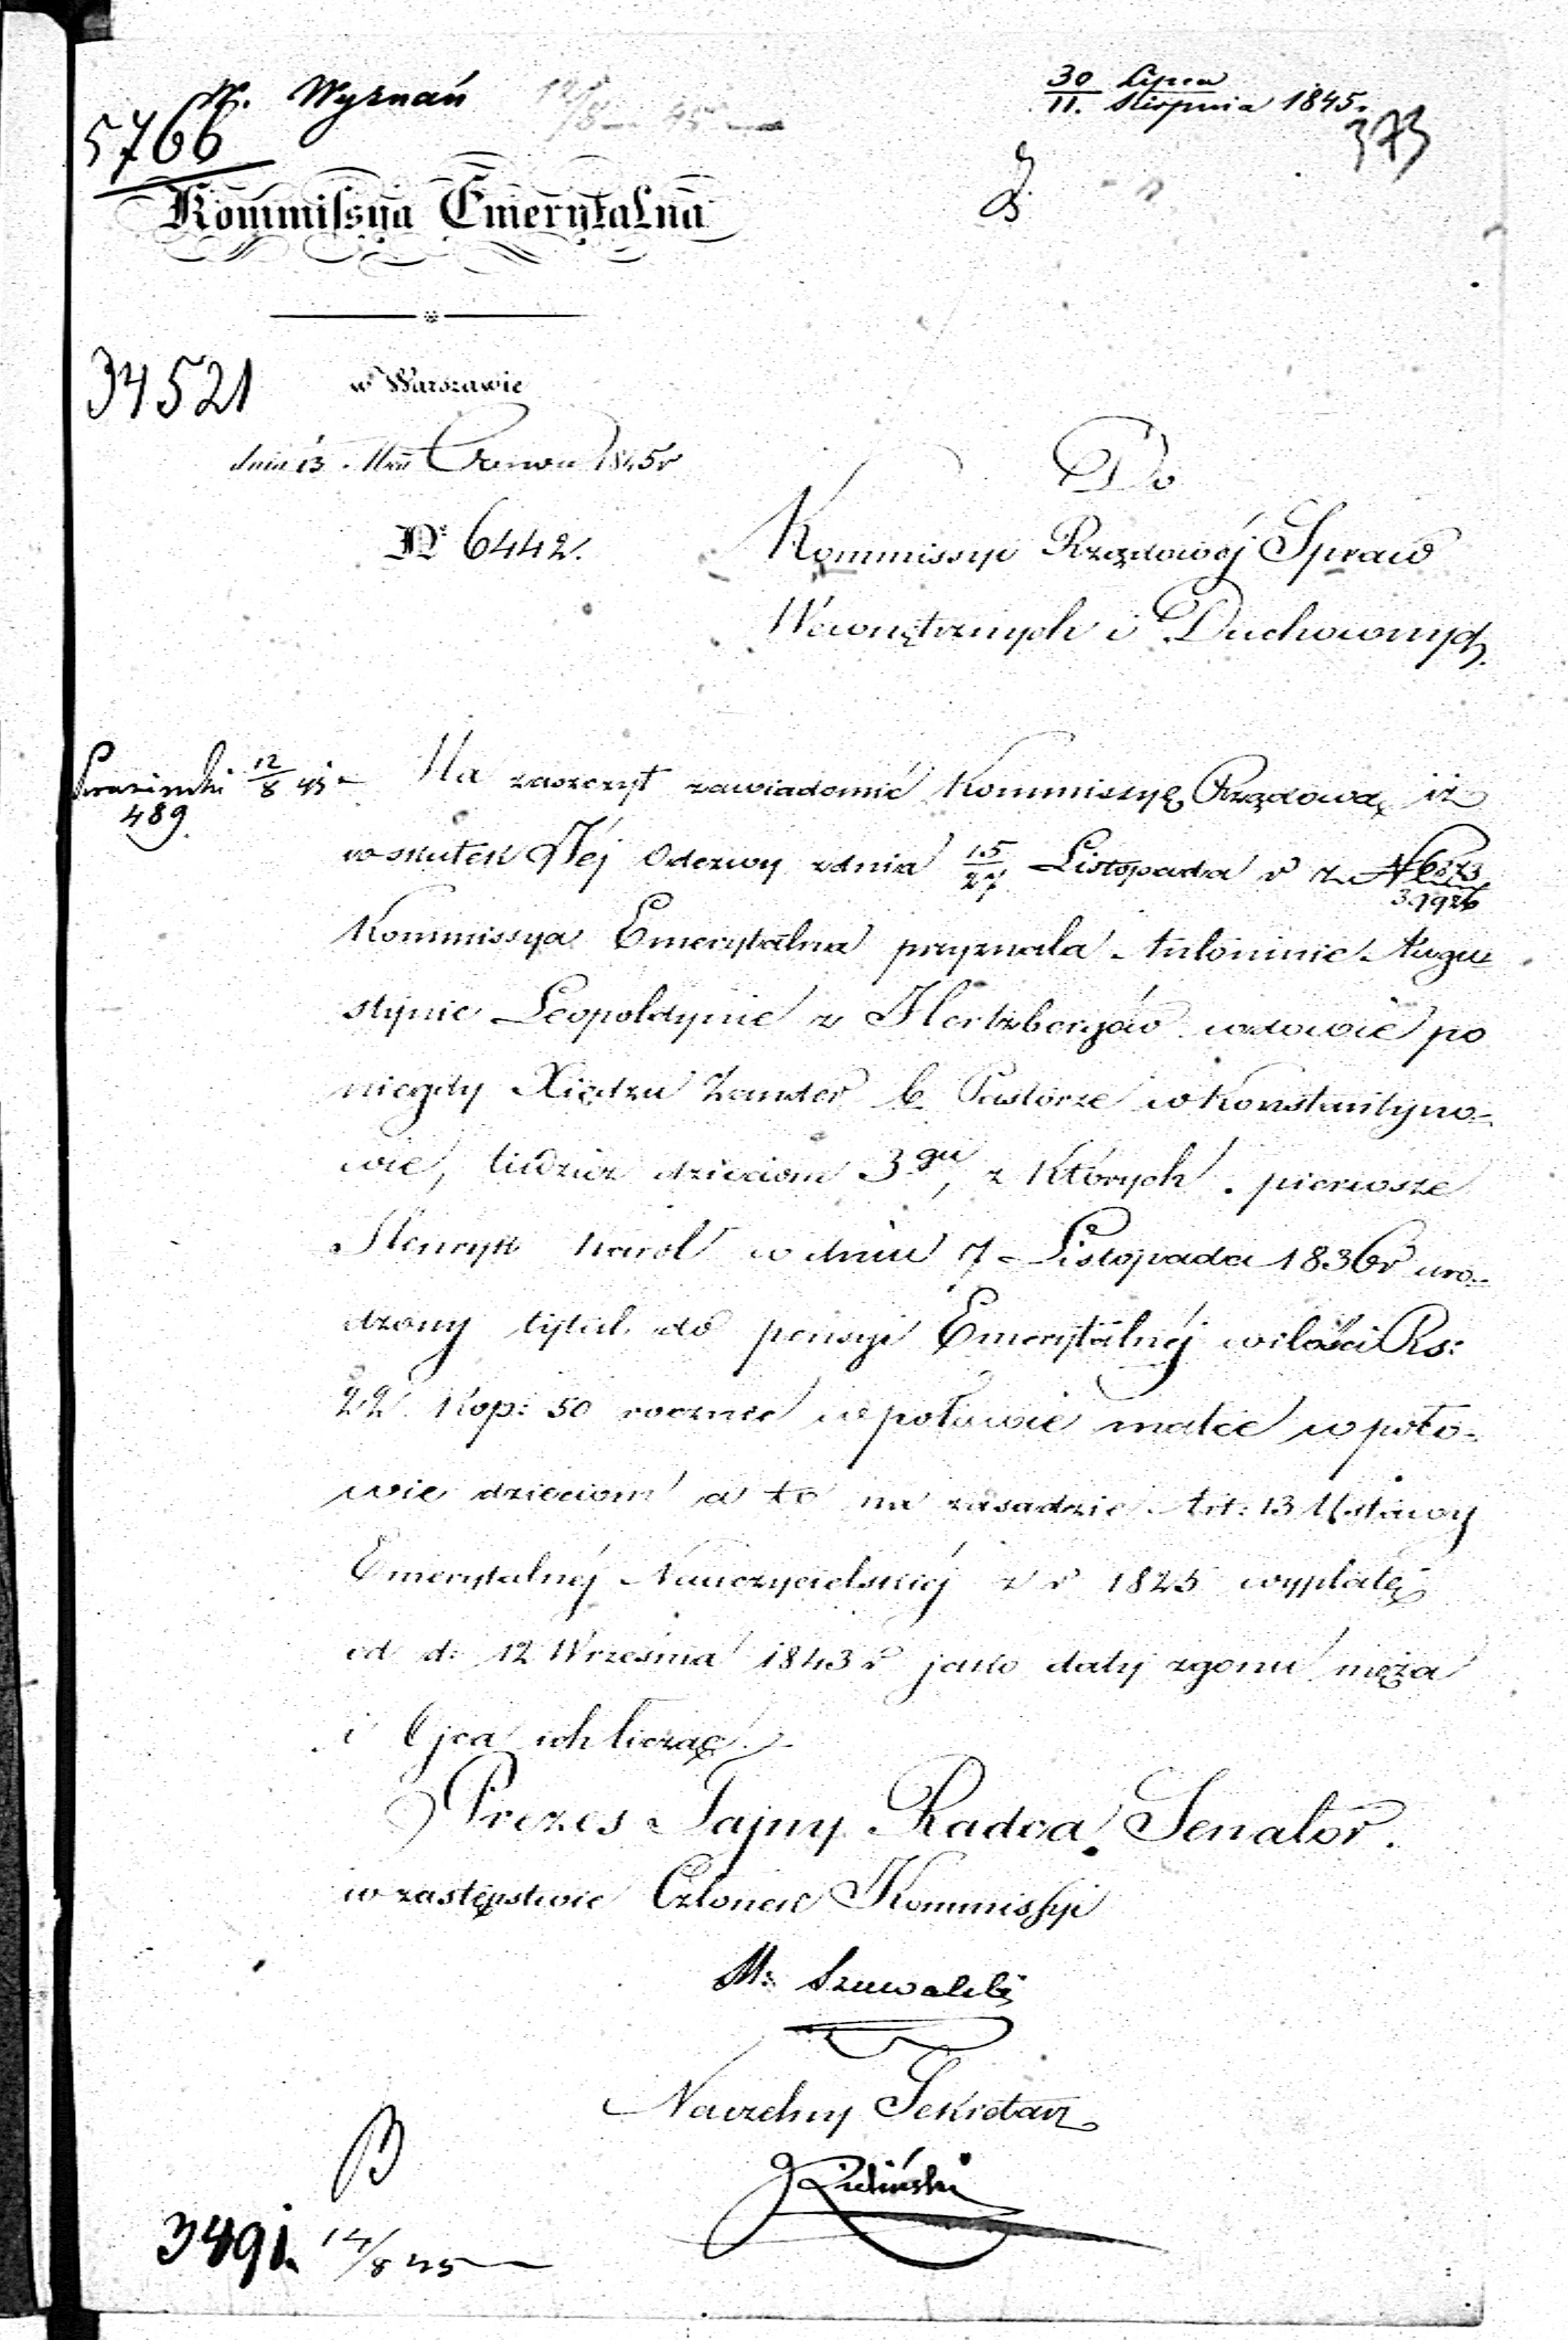 W. Wyznań
30/11. Lipca Sierpnia 1845.
5766
373
Kommissya Emerytalna
34521
w Warszawie
dnia 13 Mca Czerwca 1845 r
Nr 6442.
Do
Kommissyi Rządowéj Spraw
Wewnętrznych i Duchownych
12/8 45
489.
Ma zaszczyt zawiadomić Kommissyę Rządową iż
w skutek Jéj Odezwy z dnia 15/27 Listopada r z N
Kommissya Emerytalna przyznała Antoninie Augu-
stynie Leopoldynie z Hertzbergów wdowie po
niegdy Xiędzu Zander b. Pastorze w Konstantyno-
wie, tudzież dzieciom 3gu, z których pierwsze
Henryk Karol w dniu 7 Listopada 1836 r uro-
dzony tytuł do pensyi Emerytalnéj w ilości Rs:
22 Kop: 50 rocznie w połowie matce w poło-
wie dzieciom a to na zasadzie Art: 13 Ustawy
Emerytalnéj Nauczycielskiéj z r 1825 wypłatę
od d: 12 Września 1843 r jako daty zgonu męża
i Ojca ich licząc.
Prezes Tajny Radca, Senator.
w zastępstwie Członek Kommissyi
M: Szuwalski
Naczelny Sekretarz
B
3491. 14/8 45